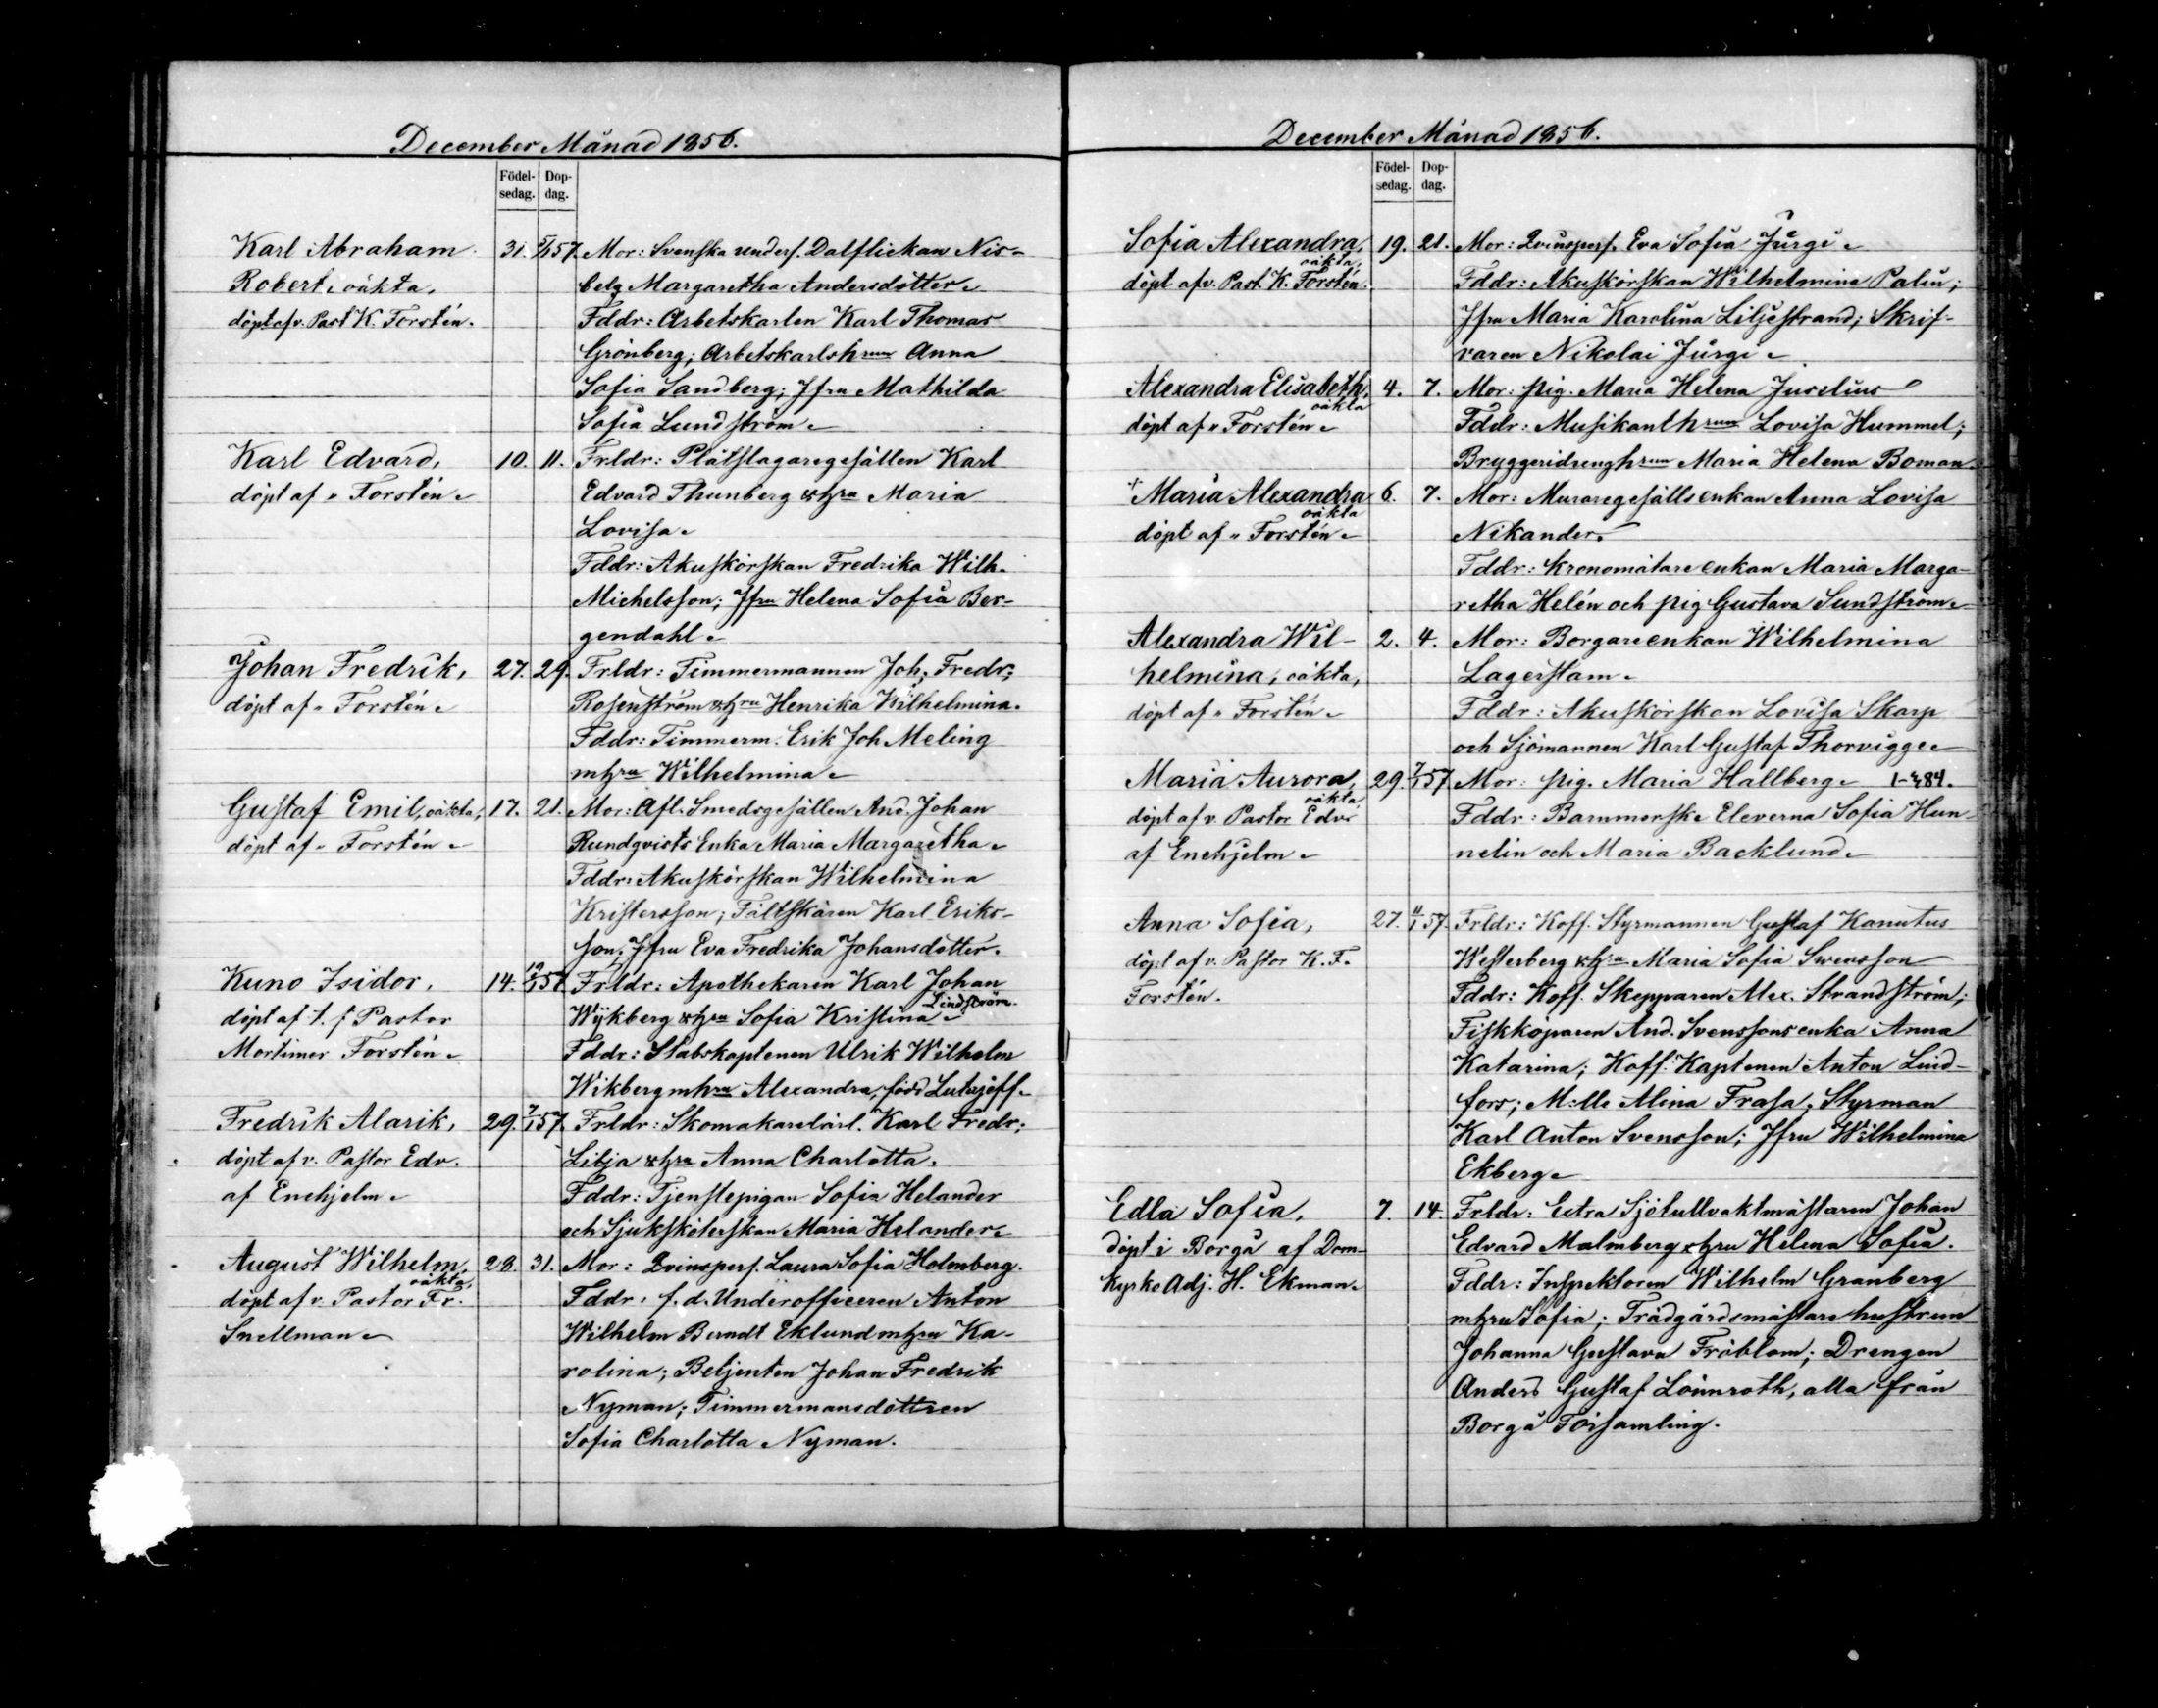 December Månad 1856.
Födel-
sedag.
Dop-
dag.
Karl Abraham
Robert, oäkta,
döpt af v. Past K. Forstén.
31. 5/1 57.
Mor: Svenska unders. Dalflickan Nis-
betz Margaretha Andersdotter.
Fddr: Arbetskarlen Karl Thomas
Grönberg; Arbetskarlshrun Anna
Sofia Sandberg; Jfru Mathilda
Sofia Lundström.
Karl Edvard,
döpt af " Forstén.
10. 11.
Frldr: Plåtslagaregesällen Karl
Edvard Thunberg o hru Maria
Lovisa.
Fddr: Akuskörskan Fredrika Wilh.
Michelsson; Jfru Helena Sofia Ber-
gendahl.
Johan Fredrik,
döpt af " Forstén.
27. 29.
Frldr: Timmermannen Joh. Fredr;
Rosenström o hru Henrika Wilhelmina.
Fddr: Timmerm. Erik Joh Meling
m hru Wilhelmina.
Gustaf Emil, oäkta,
döpt af " Forstén.
17. 21.
Mor: Afl. Smedsgesällen And. Johan
Rundqvists Enka Maria Margaretha.
Fddr: Akuskörskan Wilhelmina
Kristersson; Fältskären Karl Eriks-
son; Jfru Eva Fredrika Johansdotter.
Kuno Isidor,
döpt af t. f Pastor
Mortimer Forstén.
14. 12/1 57.
Frldr: Apothekaren Karl Johan
Wykberg o hru Sofia Kristina Lindström.
Fddr: Stabskaptenen Ulrik Wilhelm
Wikberg m hru Alexandra, född
Fredrik Alarik,
döpt af v. Pastor Edv.
af Enehjelm.
29. 7/1 57.
Frldr: Skomakarelärl. Karl Fredr;
Lilja o hru Anna Charlotta.
Fddr: Tjenstepigan Sofia Helander
och Sjuksköterskan Maria Helander.
August Wilhelm,
oäkta,
döpt af v. Pastor Fr.
Snellman.
28. 31.
Mor: Qvinspers. Laura Sofia Holmberg.
Fddr: f. d. Underofficeren Anton
Wilhelm Berndt Eklund m hru Ka-
rolina; Betjenten Johan Fredrik
Nyman; Timmermansdottren
Sofia Charlotta Nyman.
December Månad 1856.
Födel-
sedag.
Dop-
dag.
Sofia Alexandra,
oäkta,
döpt af v. Past. K. Forstén.
19. 21.
Mor: Qvinspers. Eva Sofia Jürgi.
Fddr: Akuskörskan Wilhelmina Palin;
Jfru Maria Karolina Liljestrand; Skrif-
varen Nikolai Jürgi.
Alexandra Elisabeth,
oäkta
döpt af " Forstén.
4. 7.
Mor: pig. Maria Helena Juselius
Fddr: Musikanthrun Lovisa Hummel;
Bryggeridrenghrun Maria Helena Boman.
+ Maria Alexandra
oäkta
döpt af " Forstén.
6. 7.
Mor: Muraregesällsenkan Anna Lovisa
Nikander.
Fddr: Kronomätare enkan Maria Marga-
retha Helén och pig Gustava Sundström.
Alexandra Wil-
helmina, oäkta,
döpt af " Forstén.
2. 4.
Mor: Borgareenkan Wilhelmina
Lagerstam.
Fddr: Akuskörskan Lovisa Skarp
och Sjömannen Karl Gustaf Thorvigge.
Maria Aurora,
oäkta,
döpt af v. Pastor Edv.
af Enehjelm.
29. 7/1 57
Mor: pig. Maria Hallberg.
Fddr: Barnmorske Eleverna Sofia Hun-
nelin och Maria Backlund.
Anna Sofia,
döpt af v. Pastor K. F.
Forstén.
27. 11/1 57.
Frldr: Koff. Styrmannen Gustaf Kanutus
Westerberg o hru Maria Sofia Swensson
Fddr: Koff. Skepparen Alex. Strandström;
Fiskköparen And. Svenssons enka Anna
Katarina; Koff. Kaptenen Anton Lind-
fors; M:lle Alina Frasa; Styrman
Karl Anton Svensson; Jfru Wilhelmina
Ekberg.
Edla Sofia,
döpt i Borgå af Dom-
kyrko Adj. H. Ekman.
7. 14.
Frldr: Extra Sjötullvaktmästaren Johan
Edvard Malmberg o hru Helena Sofia.
Fddr: Inspektoren Wilhelm Granberg
m hru Sofia; Trädgårdsmästare hustrun
Johanna Gustava Fröblom; Drengen
Anders Gustaf Lönnroth, alla från
Borgå Församling.